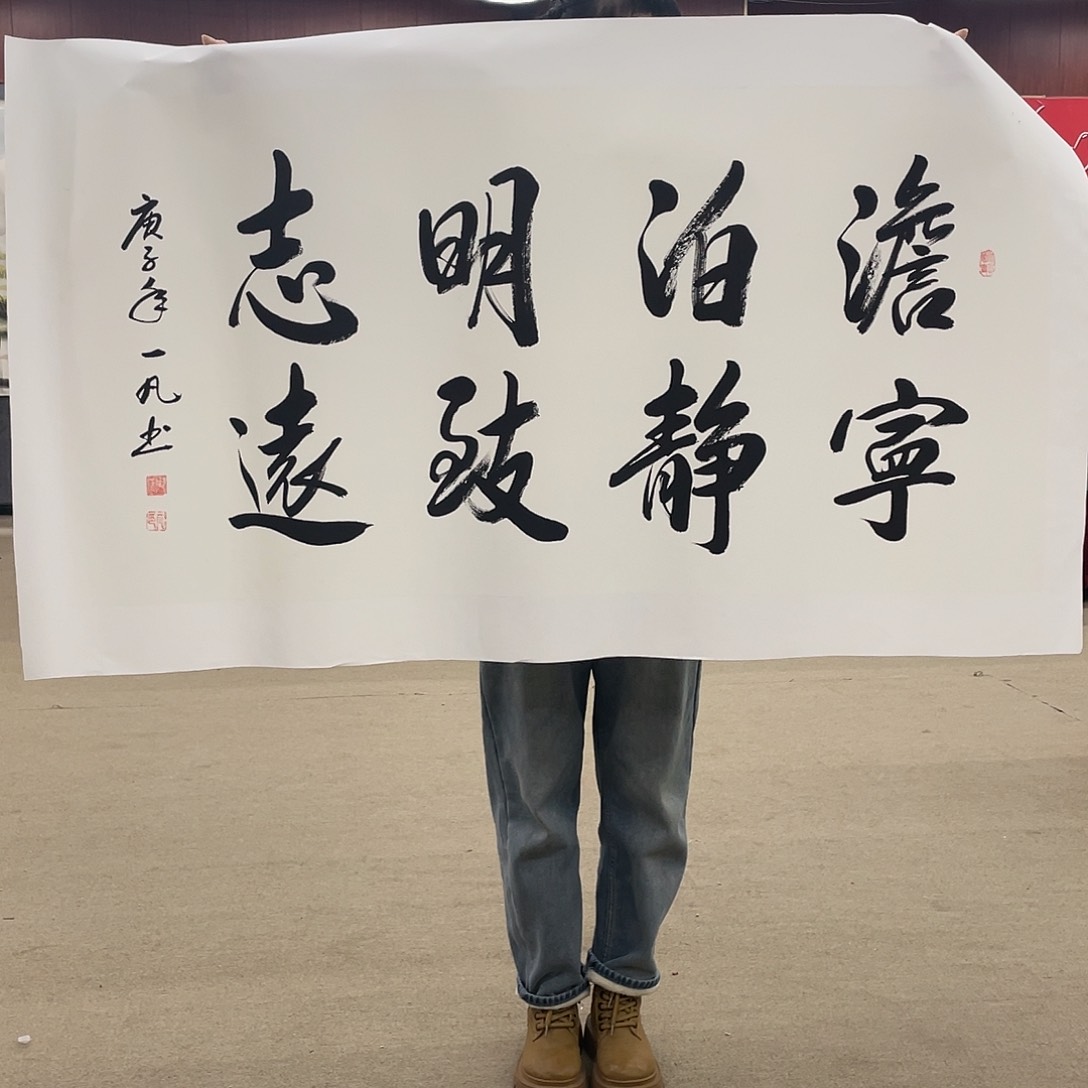 澹泊明志
寧静致遠
庚子年一凡书